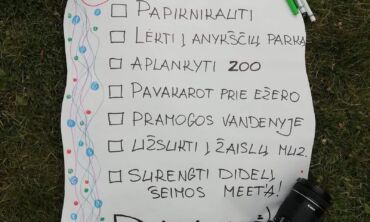 PAPIKNIKAUTI
LĖKTI Į ANYKŠČIŲ PARKĄ
APLANKYTI ZOO
PAVAKAROT PRIE EŽERO
PRAMOGOS VANDENYJE
UŽSUKTI Į ŽAISLŲ MUZ.
SURENGTI DIDELĮ
ŠEIMOS MEETĄ!